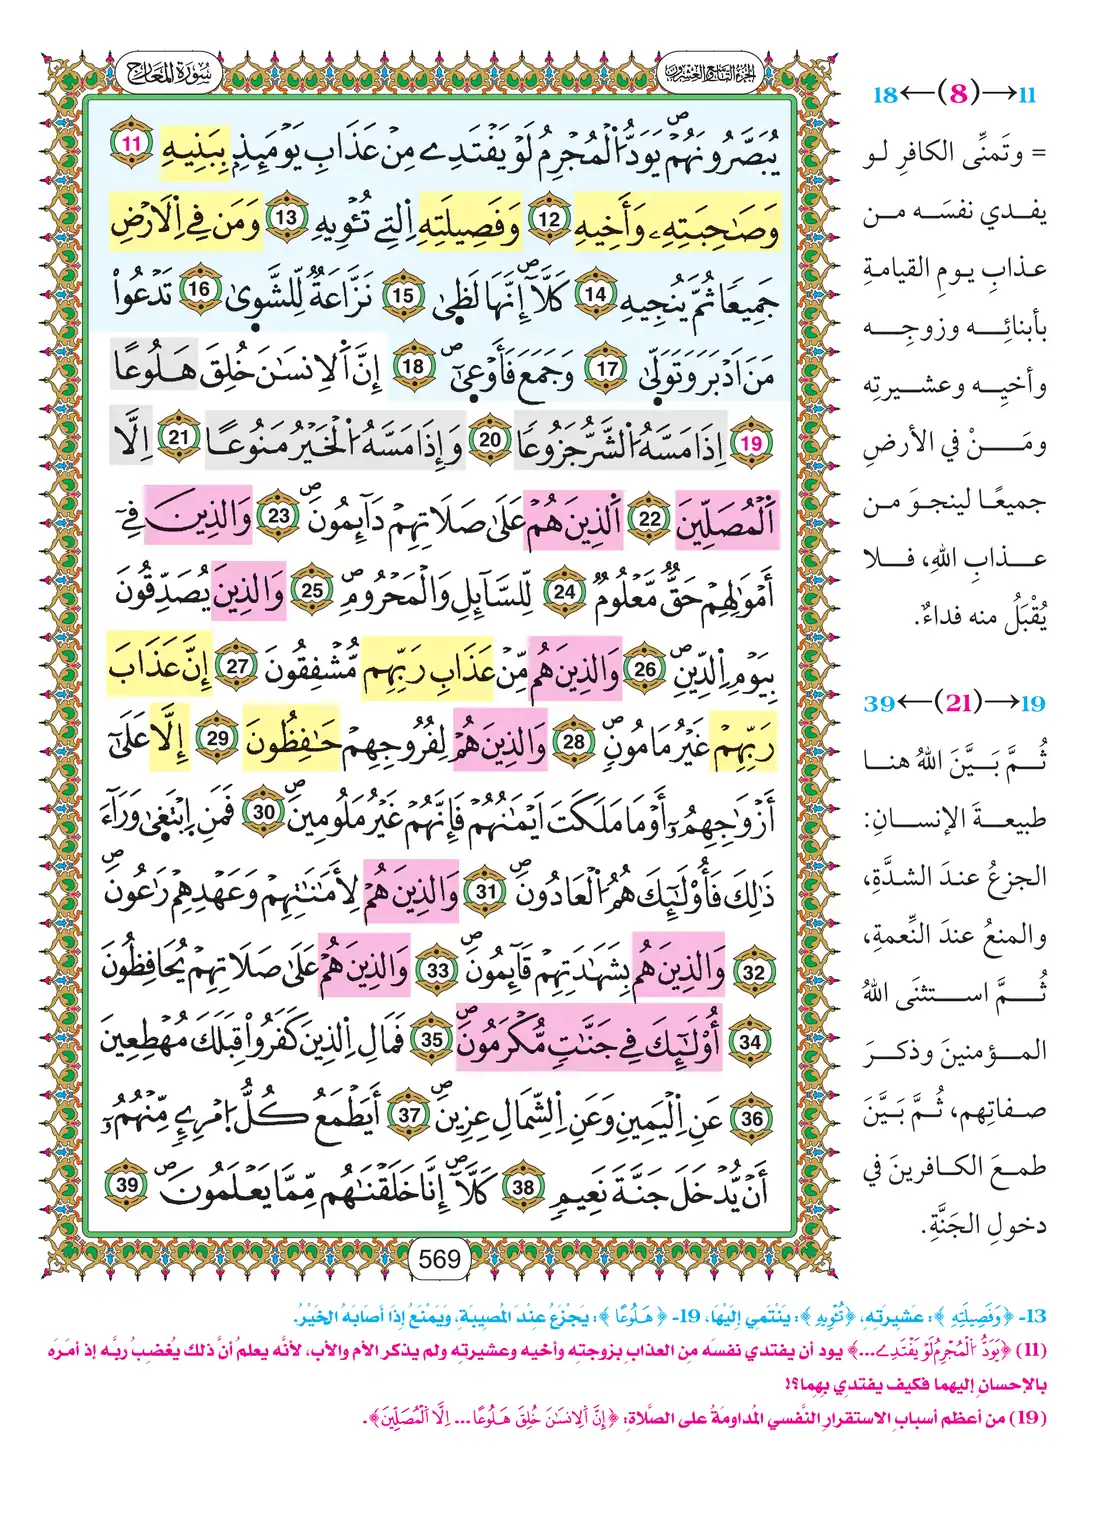 سُورَةُ المَعَارِجِ
الجُزْءُ التَّاسِعُ وَالعِشْرُونَ
يُبَصَّرُونَهُمْ يَوَدُّ اُ۬لْمُجْرِمُ لَوْ يَفْتَدِے مِنْ عَذَابِ يَوْمَئِذِۢ بِبَنِيهِ 11
وَصَٰحِبَتِهِۦ وَأَخِيهِ 12 وَفَصِيلَتِهِ اِ۬لتِے تُـْٔوِيهِ 13 وَمَن فِے اِ۬لَارْضِ
جَمِيعٗا ثُمَّ يُنجِيهِ 14 كَلَّآ إِنَّهَا لَظۭيٰ 15 نَزَّاعَةٞ لِّلشَّوۭيٰ 16 تَدْعُواْ
مَنَ اَدْبَرَ وَتَوَلّۭيٰ 17 وَجَمَعَ فَأَوْعۭيٰٓ 18 إِنَّ اَ۬لِانسَٰنَ خُلِقَ هَلُوعًا
19 اِذَا مَسَّهُ اُ۬لشَّرُّ جَزُوعٗا 20 وَإِذَا مَسَّهُ اُ۬لْخَيْرُ مَنُوعًا 21 اِلَّا
اَ۬لْمُصَلِّينَ 22 اَ۬لذِينَ هُمْ عَلَىٰ صَلَاتِهِمْ دَآئِمُونَ 23 وَالذِينَ فِےٓ
أَمْوَٰلِهِمْ حَقّٞ مَّعْلُومٞ 24 لِّلسَّآئِلِ وَالْمَحْرُومِ 25 وَالذِينَ يُصَدِّقُونَ
بِيَوْمِ اِ۬لدِّينِ 26 وَالذِينَ هُم مِّنْ عَذَابِ رَبِّهِم مُّشْفِقُونَ 27 إِنَّ عَذَابَ
رَبِّهِمْ غَيْرُ مَامُونٖ 28 وَالذِينَ هُمْ لِفُرُوجِهِمْ حَٰفِظُونَ 29 إِلَّا عَلَىٰٓ
أَزْوَٰجِهِمُۥٓ أَوْ مَا مَلَكَتَ اَيْمَٰنُهُمْ فَإِنَّهُمْ غَيْرُ مَلُومِينَ 30 فَمَنِ اِ۪بْتَغۭيٰ وَرَآءَ
ذَٰلِكَ فَأُوْلَٰٓئِكَ هُمُ اُ۬لْعَادُونَ 31 وَالذِينَ هُمْ لِأَمَٰنَٰتِهِمْ وَعَهْدِهِمْ رَٰعُونَ
32 وَالذِينَ هُم بِشَهَٰدَتِهِمْ قَآئِمُونَ 33 وَالذِينَ هُمْ عَلَىٰ صَلَاتِهِمْ يُحَافِظُونَ
34 أُوْلَٰٓئِكَ فِے جَنَّٰتٖ مُّكْرَمُونَ 35 فَمَالِ اِ۬لذِينَ كَفَرُواْ قِبَلَكَ مُهْطِعِينَ
36 عَنِ اِ۬لْيَمِينِ وَعَنِ اِ۬لشِّمَالِ عِزِينَ 37 أَيَطْمَعُ كُلُّ اُ۪مْرِےٕٖ مِّنْهُمُۥٓ
أَنْ يُّدْخَلَ جَنَّةَ نَعِيمٖ 38 كَلَّآ إِنَّا خَلَقْنَٰهُم مِّمَّا يَعْلَمُونَ 39
569
11→(8)←18
= وتَمنِّى الكافرِ لو
يفدي نفسَه من
عذابِ يومِ القيامةِ
بأبنائِه وزوجِه
وأخيِه وعشيرتِه
ومَنْ في الأرضِ
جميعًا لينجوَ من
عذابِ اللهِ، فلا
يُقْبَلُ منه فداءٌ.
19→(21)←39
ثُمَّ بَيَّنَ اللهُ هنا
طبيعةَ الإنسانِ:
الجزعُ عندَ الشدَّةِ،
والمنعُ عندَ النِّعمةِ،
ثُمَّ استثنَى اللهُ
المؤمنينَ وذكرَ
صفاتِهم، ثُمَّ بَيَّنَ
طمعَ الكافرينَ في
دخولِ الجَنَّةِ.
13- ﴿وَفَصِيلَتِهِ﴾: عشيرتِهِ، ﴿تُـْٔوِيهِ﴾: يَنْتَمي إليْهَا، 19- ﴿هَلُوعًا﴾: يَجْزَعُ عِنْدَ المصِيبَةِ، وَيَمْنَعُ إذَا أصَابَهُ الخَيْرُ.
(11) ﴿يَوَدُّ اُ۬لْمُجْرِمُ لَوْ يَفْتَدِے...﴾ يود أن يفتدي نفسَه مِن العذابِ بزوجتِه وأخيه وعشيرتِه ولم يذكر الأم والأب، لأنَّه يعلمُ أنَّ ذلك يُغضِبُ ربَّه إذ أمَرَه
بالإحسانِ إليهما فكيف يفتدي بِهِما؟!
(19) من أعظم أسبابِ الاستقرارِ النَّفسي المُداومَةُ على الصَّلاةِ: ﴿إِنَّ اَ۬لِانسَٰنَ خُلِقَ هَلُوعًا... اِلَّا اَ۬لْمُصَلِّينَ﴾.